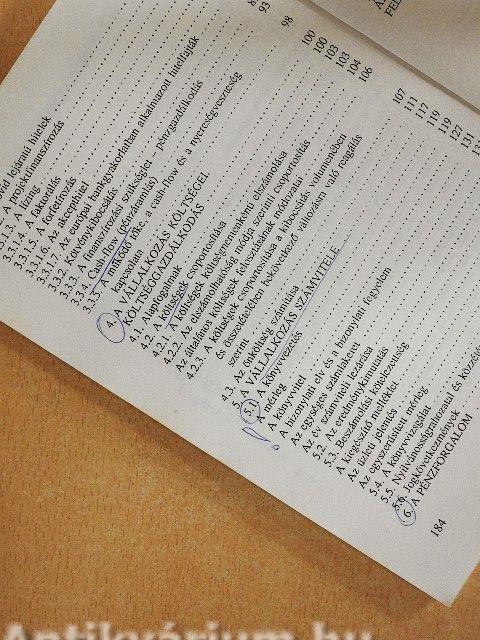 93
98
rövid lejáratú hitelek
A projektfinanszírozás
3.3.1.3. A lízing
3.3.1.4. A faktorálás
3.3.1.5. A forfetírozás
3.3.1.6. Az akceptihitel
3.3.1.7. Az európai bankgyakorlatban alkalmazott hitelfajták
3.3.2. Kötvénykibocsátás
3.3.3. A finanszírozási szükséglet – pénzgazdálkodás
3.3.4. Cash-flow (pénzáramlás)
3.3.5. A működő tőke, a cash-flow és a nyereségveszteség
kapcsolata
4. A VÁLLALKOZÁS KÖLTSÉGEI,
KÖLTSÉGGAZDÁLKODÁS
4.1. Alapfogalmak
4.2. A költségek csoportosítása
4.2.1. A költségek költségnemenkénti elszámolása
4.2.2. Az elszámolhatóság módja szerinti csoportosítás
Az általános költségek felosztásának módozatai
4.2.3. A költségek csoportosítása a kibocsátás volumenében
és összetételében bekövetkező változásra való reagálás
szerint
4.3. Az önköltség számítása
5. A VÁLLALKOZÁS SZÁMVITELE
5.1. A könyvvezetés
A mérleg
A könyvvitel
A bizonylati elv és a bizonylati fegyelem
Az egységes számlakeret
Az év számviteli lezárása
5.2. Az eredménykimutatás
5.3. Beszámolási kötelezettség
A kiegészítő melléklet
Az üzleti jelentés
Az egyszerűsített mérleg
5.4. A könyvvizsgálat
5.5. Nyilvánosságrahozatal és
5.6. Jogkövetkezmények
6. A PÉNZFORGALOM
100
100
103
103
104
106
107
111
117
119
119
127
131
184
Antikvárium.hu